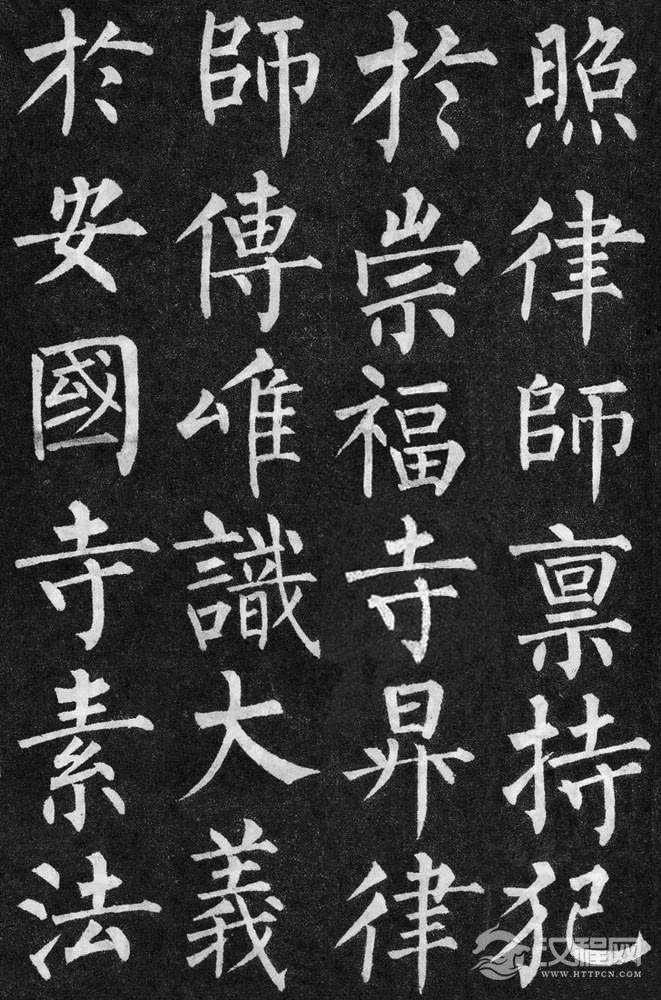 照律師禀持犯
於崇福寺昇律
師傳唯識大義
於安國寺素法
汉程网
WWW.HTTPCN.COM